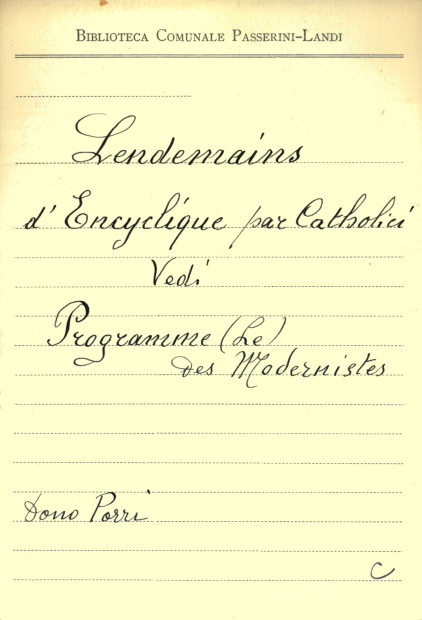 BIBLIOTECA COMUNALE PASSERINI-LANDI
Lendemains
d'Encyclique par Catholici
Vedi
Programme (Le)
des Modernistes
Dono Porri
C